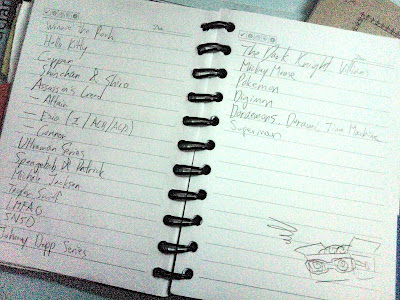 Winnie the Pooh
Hello Kitty
Shinchan & Shiro
Assassin's Creed
- Altair
- Ezio (
- Connor
Ultraman Series
Spongebob & Patrick
Michael Jackson
Taylor Swift
LMFAO
SNSD
Johnny Depp Series
The Dark Knight Villains
Mickey Mouse
Pokemon
Digimon
Doraemons, Dorami, Time Machine
Superman